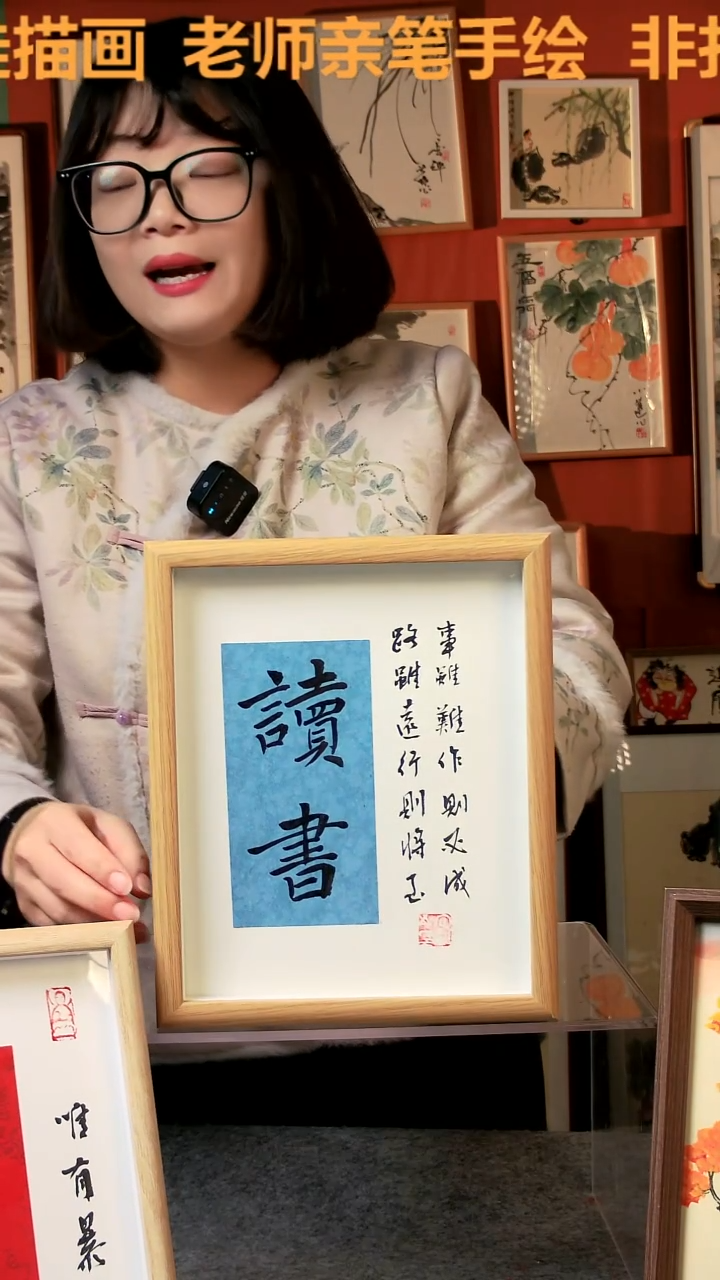 描画 老师亲笔手绘 非
五福
讀書
事雖難作則必成
路雖遠行則將至
唯有